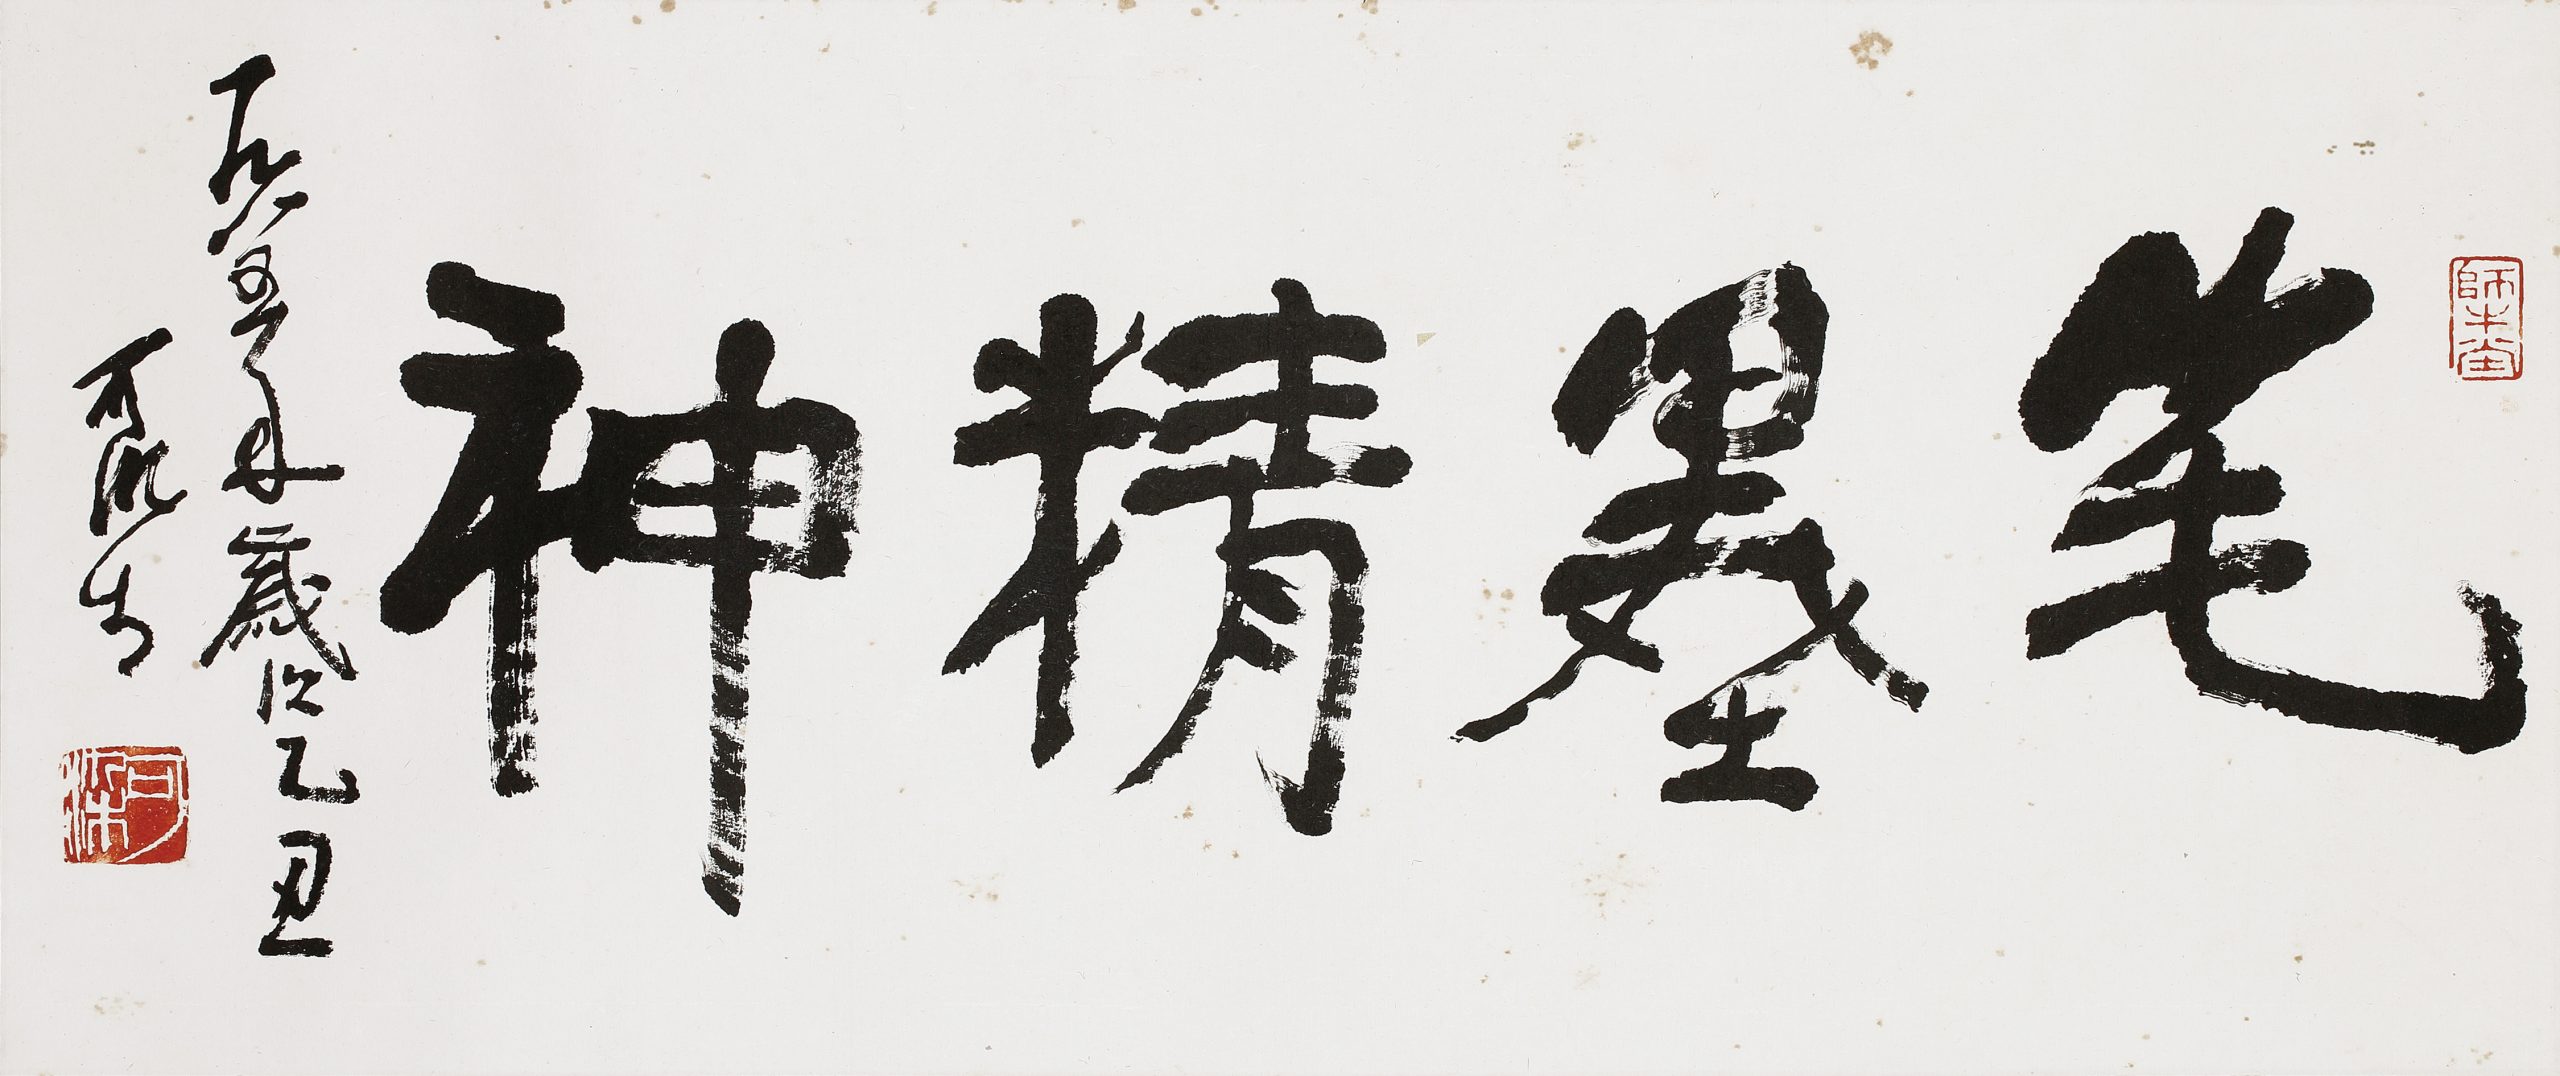 笔墨精神
一九八五年歲次乙丑
可染书
師牛堂
可染